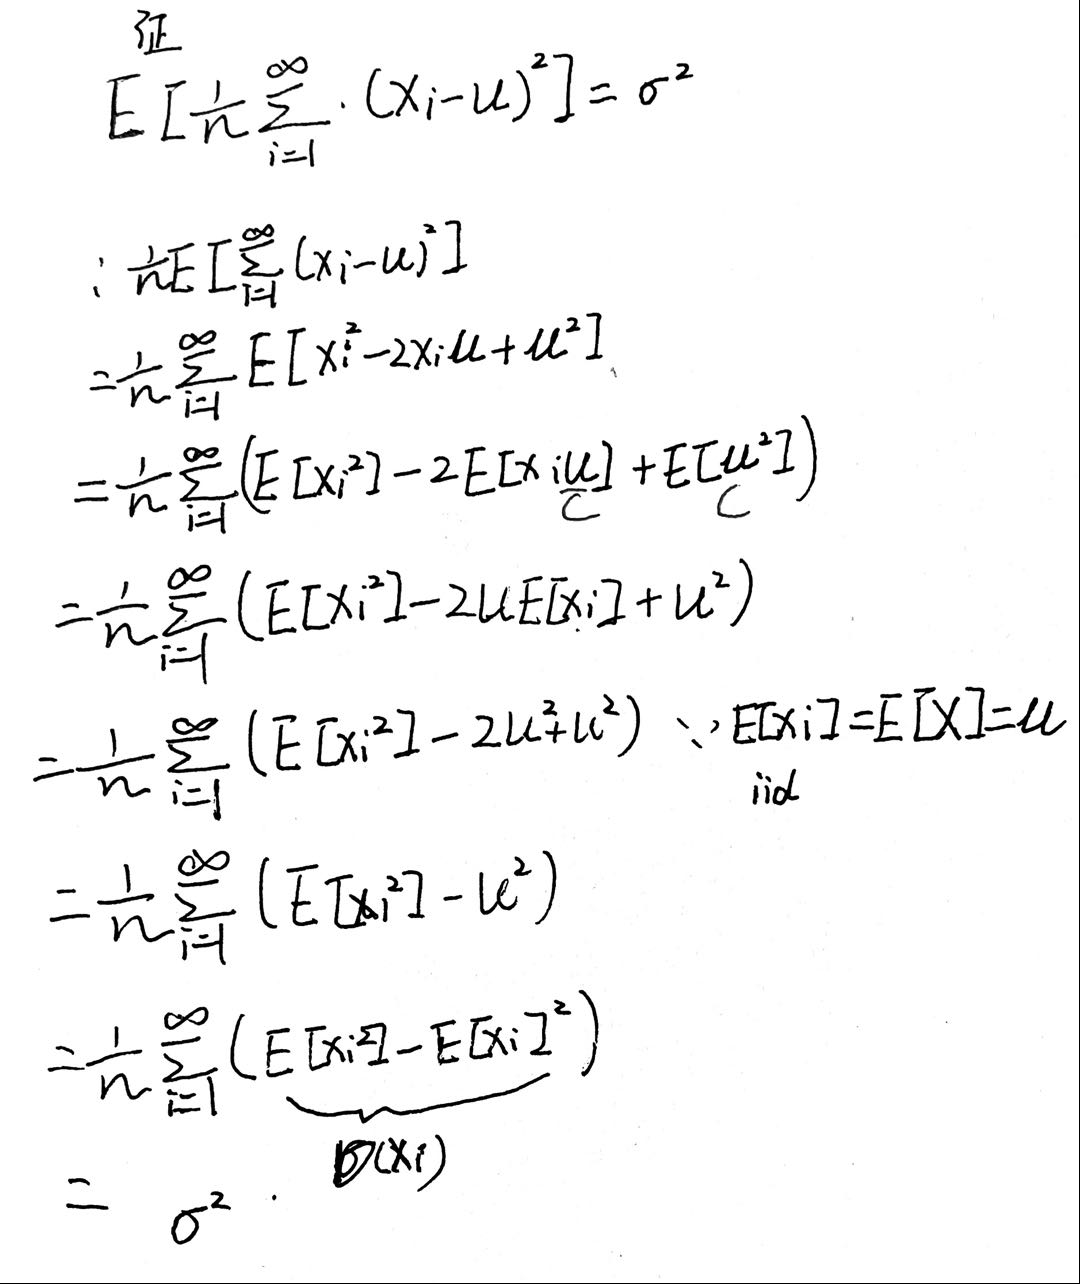 证
E[\frac{1}{n}\sum_{i=1}^{∞}·(x_i-u)^2]=σ^2
: \frac{1}{n}E[\sum_{i=1}^{∞}(x_i-u)^2]
=\frac{1}{n}\sum_{i=1}^{∞}E[x_i^2-2x_iu+u^2]
=\frac{1}{n}\sum_{i=1}^{∞}(E[x_i^2]-2E[x_iu]+E[u^2])
C C
=\frac{1}{n}\sum_{i=1}^{∞}(E[x_i^2]-2uE[x_i]+u^2)
=\frac{1}{n}\sum_{i=1}^{∞}(E[x_i^2]-2u^2+u^2) ∵E[x_i]=E[X]=u
iid
=\frac{1}{n}\sum_{i=1}^{∞}(E[x_i^2]-u^2)
=\frac{1}{n}\sum_{i=1}^{∞}(E[x_i^2]-E[x_i]^2)
D(x_i)
= σ^2.